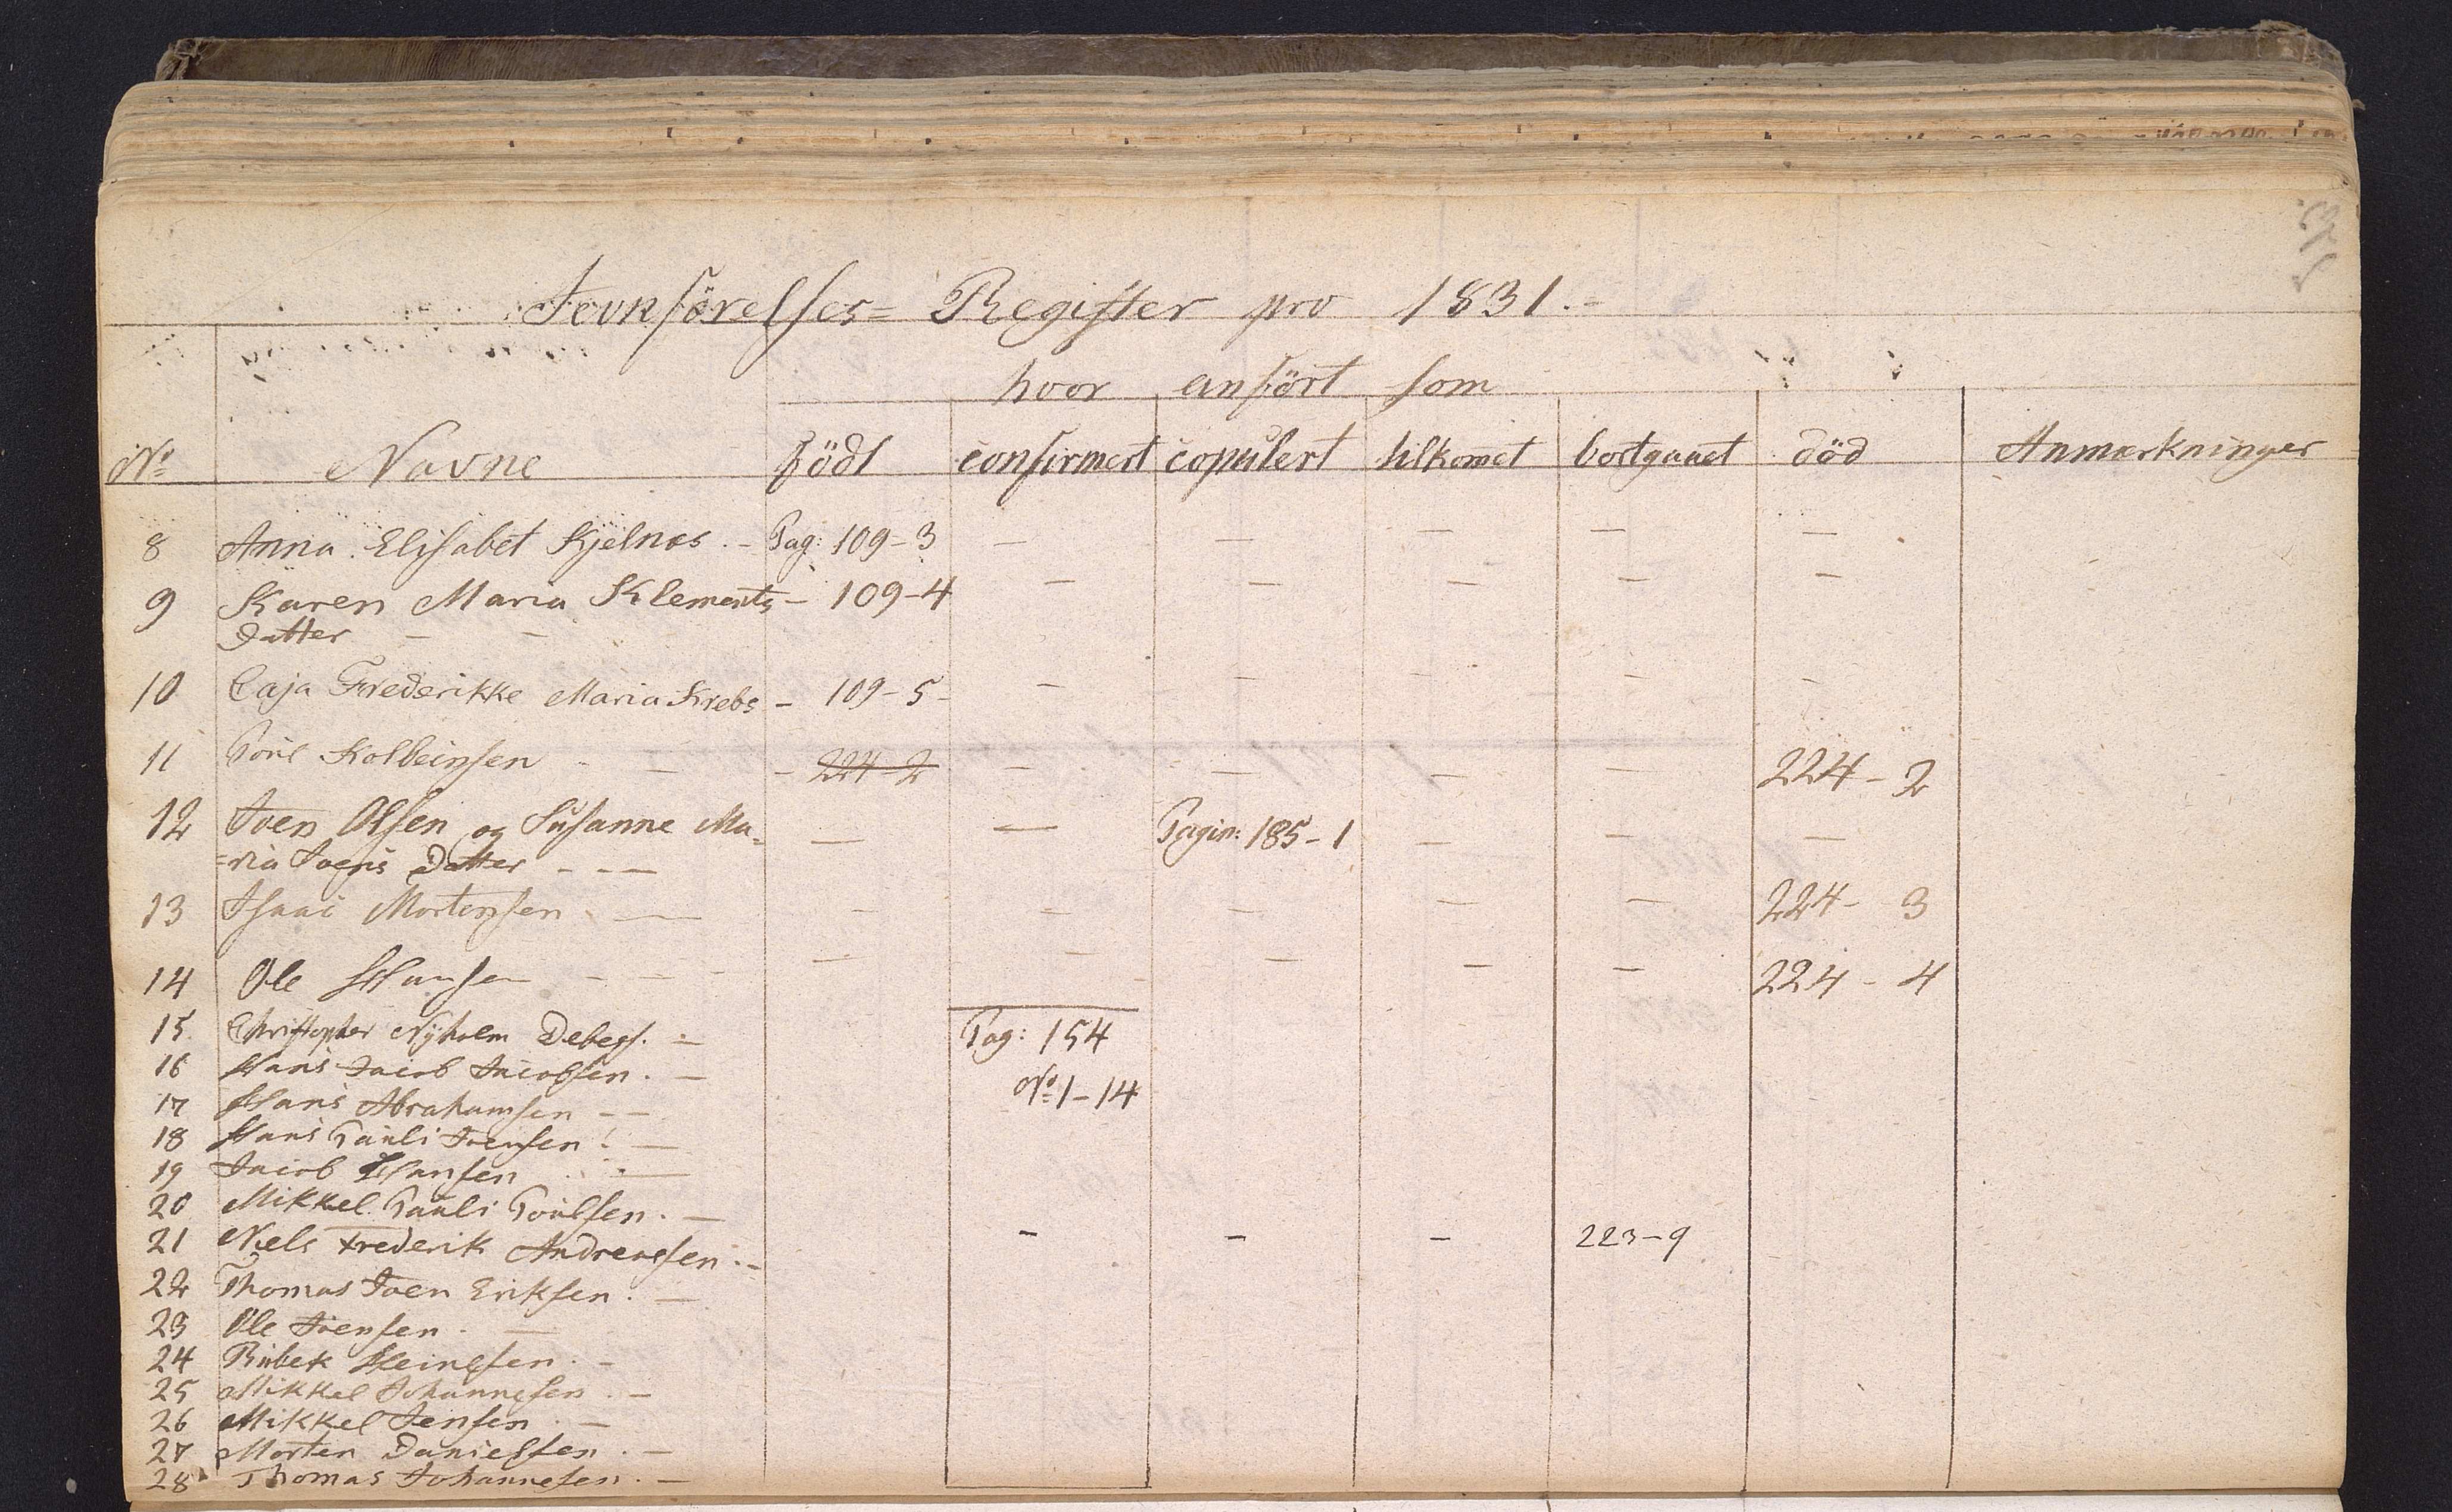 Jevnförelses= Register pro 1831.-
hvor anfört som
No Navne födt confirmert copulert tilkomet bortgaaet död Anmærkninger
8 Anna Elisabet Kjelnæs. - Pag: 109-3 — — — — —
9 Karen Maria Klements - 109-4 — — — — —
Datter — —
10 Caja Frederikke Maria Krebs - 109-5 - — — — — —
11 Poul Kolbeinsen - — - 224-2 — — — — 224-2
12 Joen Olsen og Susanne Ma= — — Pagin: 185-1 — — —
=ria Joens Datter - - —
13 Isaac Mortensen — — — — — — 224- 3
14 Ole Hansen - - - — — — — — 224-4
15 Christopher Nÿholm Debess. — Pag: 154
16 Hans Jacob Jacobsen. — No 1-14
17 Hans Abrahamsen - —
18 Hans Pauli Joensen. —
19 Jacob Hansen . —
20 Mikkel Pauli Poulsen. —
21 Niels Frederik Andreassen. - - - - 223-9
22 Thomas Joen Eriksen. —
23 Ole Joensen. —
24 Rubek Heinesen. -
25 Mikkel Johannesen. —
26 Mikkel Jensen. —
27 Morten Danielsen. —
28 Thomas Johannesen. —